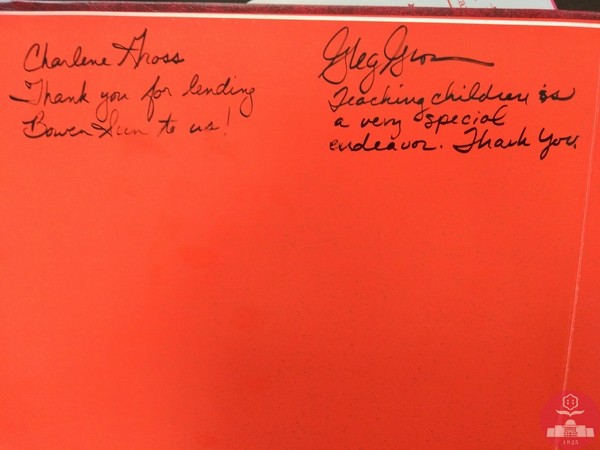 Charlene Gross
Thank you for lending
Bowen Sun to us!
Greg Gross
Teaching children is
a very special
endeavor. Thank You.
1925